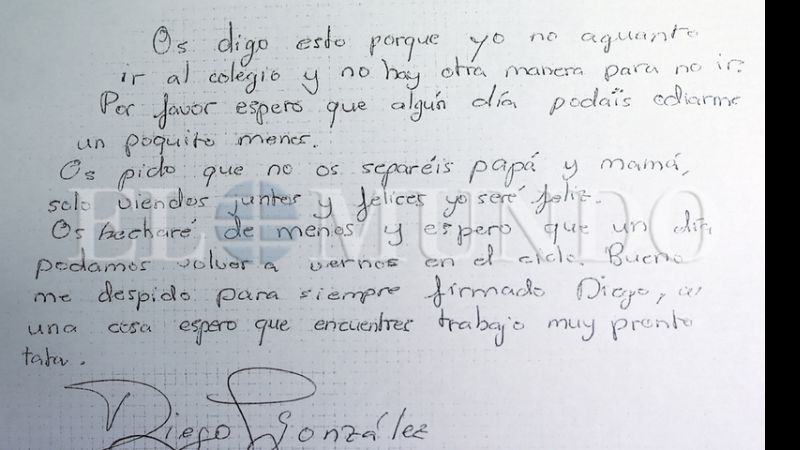 Os digo esto porque yo no aguanto
ir al colegio y no hay otra manera para no ir.
Por favor espero que algún día podáis odiarme
un poquito menos.
Os pido que no os separéis papá y mamá,
solo viendos juntos y felices yo seré feliz.
Os hecharé de menos y espero que un día
podamos volver a vernos en el cielo. Bueno
me despido para siempre firmado Diego, a
una cosa espero que encuentres trabajo muy pronto
tata.
Diego González
EL MUNDO